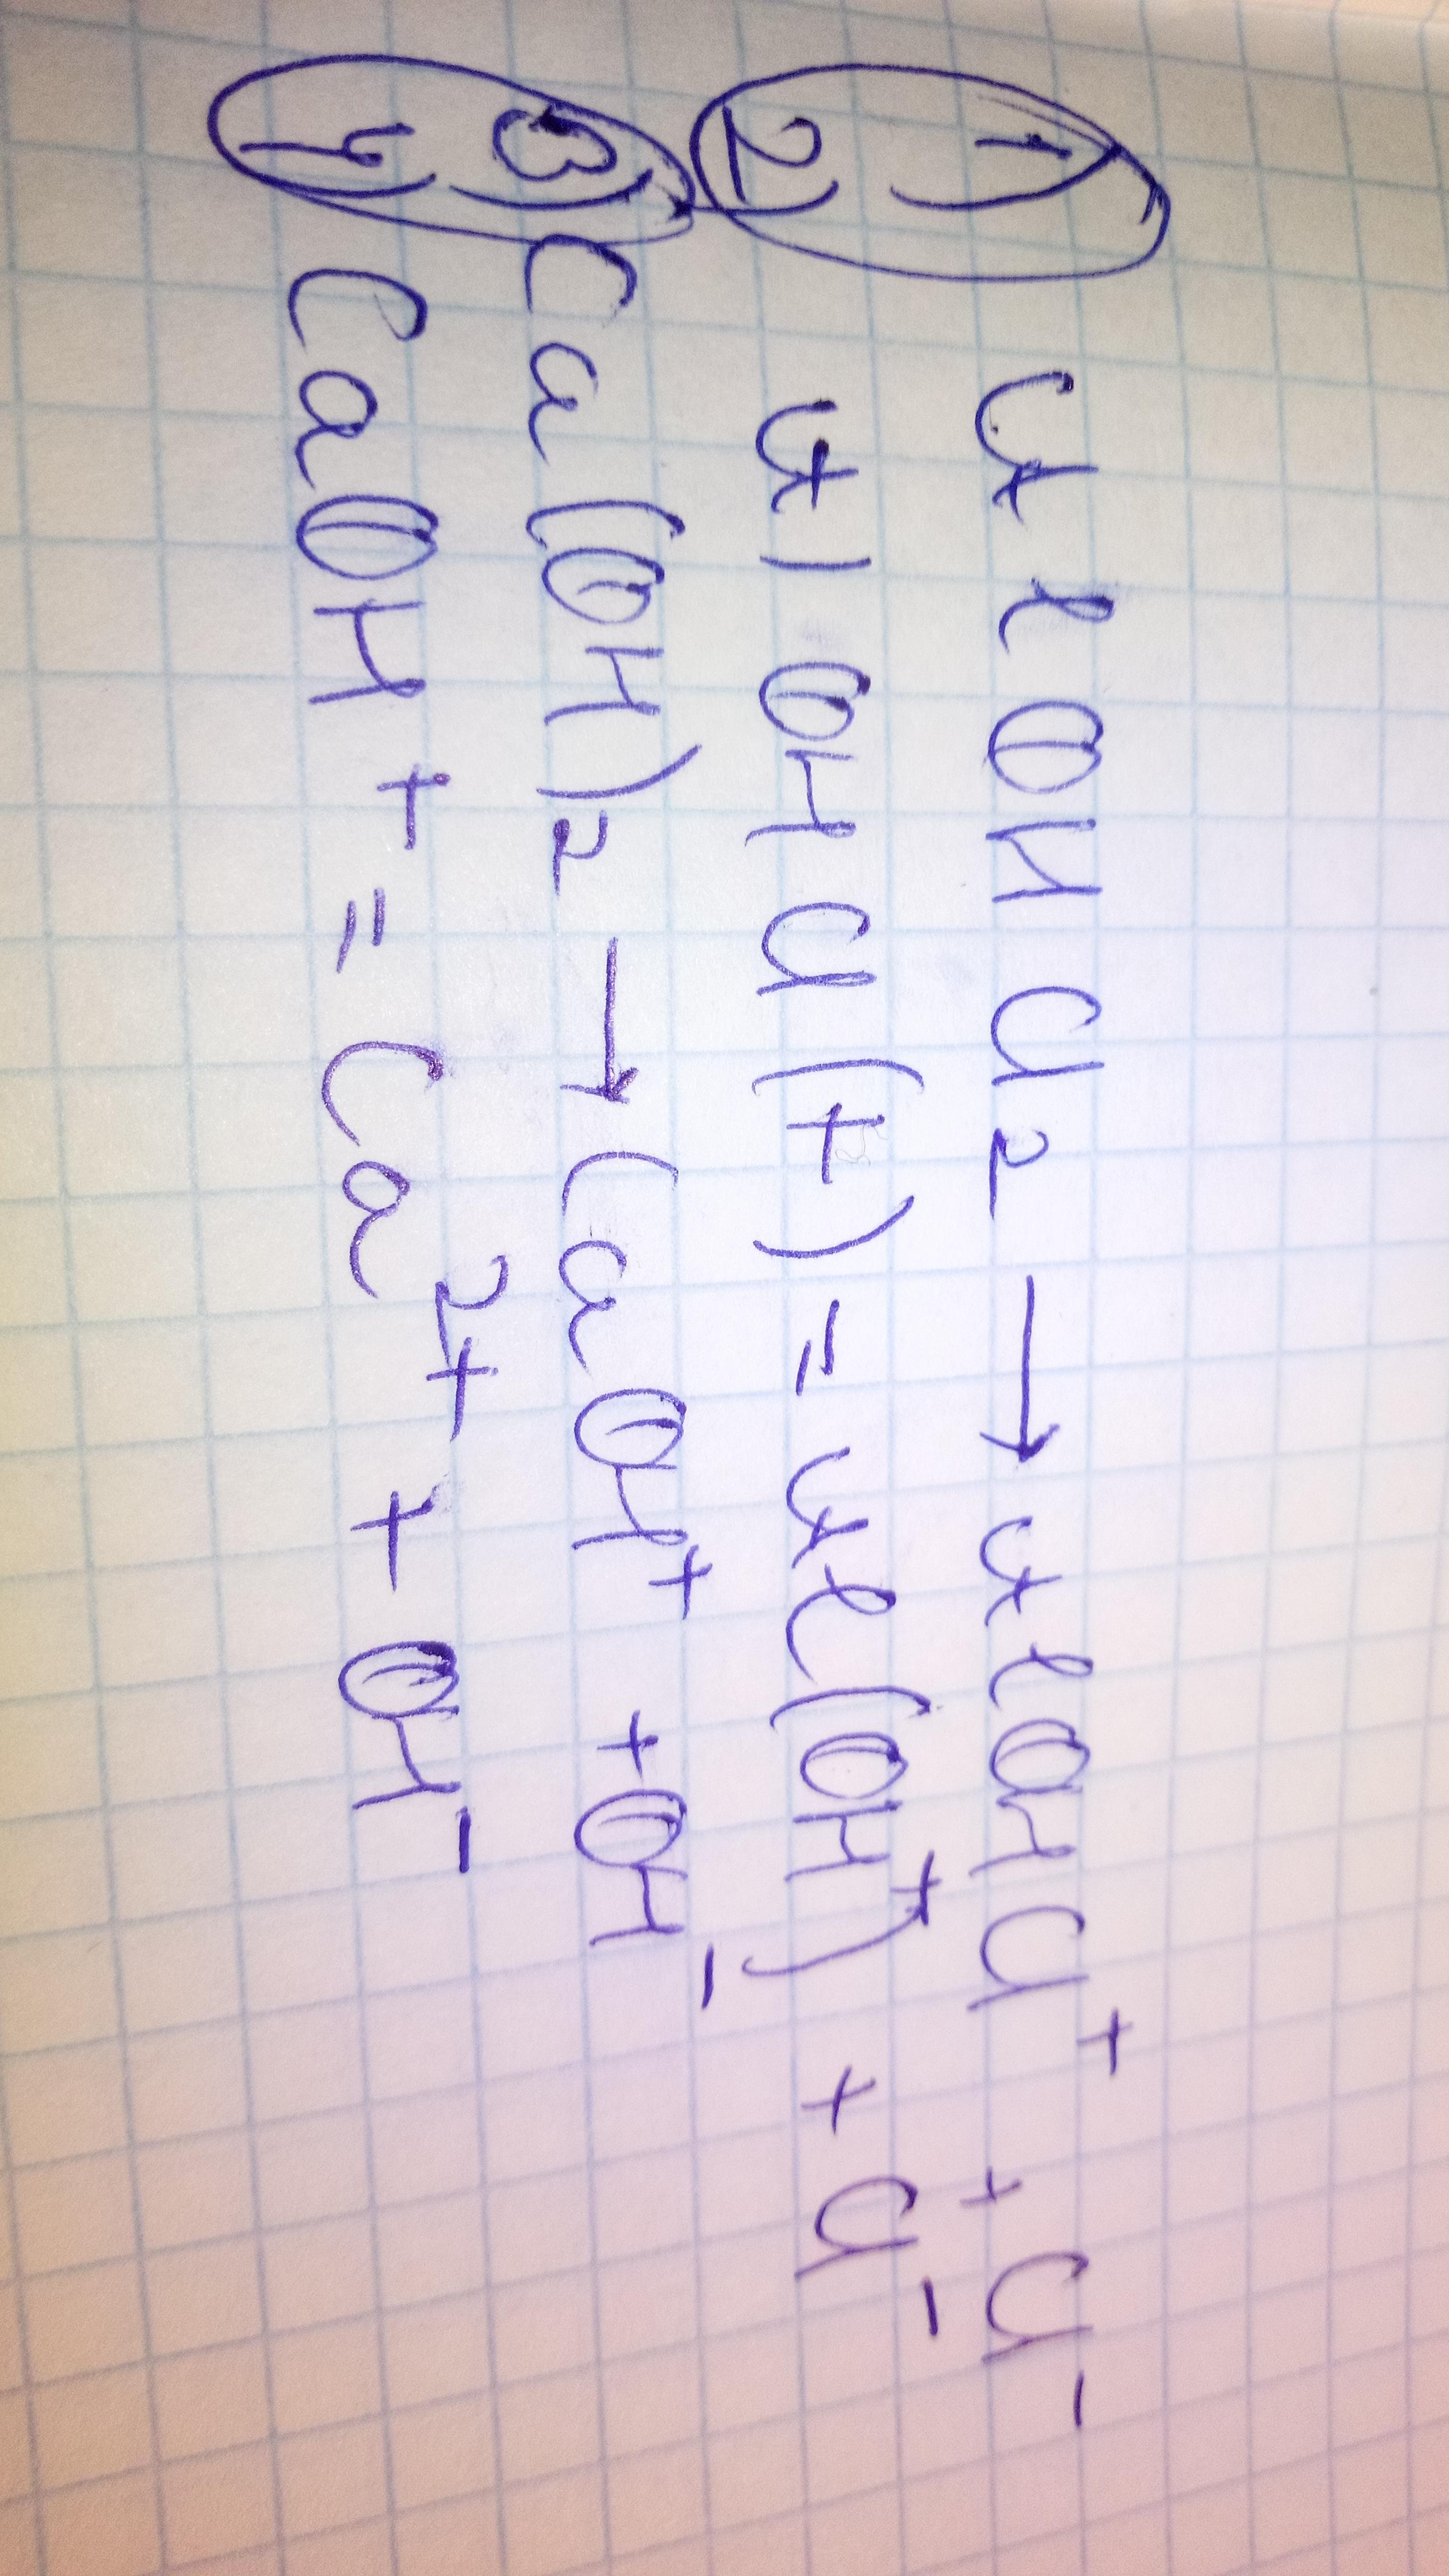 1) FeOHCl₂ → FeOHCl⁺ + Cl⁻
2) F(OHCl(+) = Fe(OH⁺) + Cl⁻
3) Ca(OH)₂ → CaOH⁺ + OH⁻
4) CaOH⁺ = Ca²⁺ + OH⁻